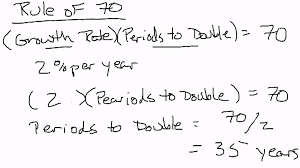 Rule of 70
(Growth Rate)(Periods to Double) = 70
2% per year
(2)(Peariods to Double) = 70
Periods to Double = 70/2
= 35 years